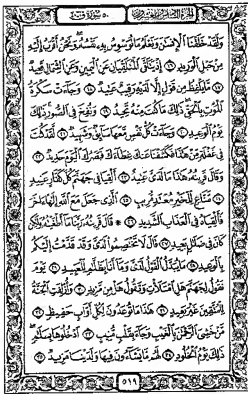 سورة ق ٥٠
الجزء السادس والعشرون
وَلَقَدْ خَلَقْنَا ٱلْإِنسَٰنَ وَنَعْلَمُ مَا تُوَسْوِسُ بِهِۦ نَفْسُهُۥ وَنَحْنُ أَقْرَبُ إِلَيْهِ
مِنْ حَبْلِ ٱلْوَرِيدِ ١٦ إِذْ يَتَلَقَّى ٱلْمُتَلَقِّيَانِ عَنِ ٱلْيَمِينِ وَعَنِ ٱلشِّمَالِ قَعِيدٌ
١٧ مَّا يَلْفِظُ مِن قَوْلٍ إِلَّا لَدَيْهِ رَقِيبٌ عَتِيدٌ ١٨ وَجَآءَتْ سَكْرَةُ
ٱلْمَوْتِ بِٱلْحَقِّ ذَٰلِكَ مَا كُنتَ مِنْهُ تَحِيدُ ١٩ وَنُفِخَ فِى ٱلصُّورِ ذَٰلِكَ
يَوْمُ ٱلْوَعِيدِ ٢٠ وَجَآءَتْ كُلُّ نَفْسٍ مَّعَهَا سَآئِقٌ وَشَهِيدٌ ٢١ لَّقَدْ كُنتَ
فِى غَفْلَةٍ مِّنْ هَٰذَا فَكَشَفْنَا عَنكَ غِطَآءَكَ فَبَصَرُكَ ٱلْيَوْمَ حَدِيدٌ ٢٢
وَقَالَ قَرِينُهُۥ هَٰذَا مَا لَدَىَّ عَتِيدٌ ٢٣ أَلْقِيَا فِى جَهَنَّمَ كُلَّ كَفَّارٍ عَنِيدٍ
٢٤ مَّنَّاعٍ لِّلْخَيْرِ مُعْتَدٍ مُّرِيبٍ ٢٥ ٱلَّذِى جَعَلَ مَعَ ٱللَّهِ إِلَٰهًا ءَاخَرَ
فَأَلْقِيَاهُ فِى ٱلْعَذَابِ ٱلشَّدِيدِ ٢٦ ۞ قَالَ قَرِينُهُۥ رَبَّنَا مَآ أَطْغَيْتُهُۥ وَلَٰكِن
كَانَ فِى ضَلَٰلٍۭ بَعِيدٍ ٢٧ قَالَ لَا تَخْتَصِمُوا۟ لَدَىَّ وَقَدْ قَدَّمْتُ إِلَيْكُم
بِٱلْوَعِيدِ ٢٨ مَا يُبَدَّلُ ٱلْقَوْلُ لَدَىَّ وَمَآ أَنَا۠ بِظَلَّٰمٍ لِّلْعَبِيدِ ٢٩ يَوْمَ
نَقُولُ لِجَهَنَّمَ هَلِ ٱمْتَلَأْتِ وَتَقُولُ هَلْ مِن مَّزِيدٍ ٣٠ وَأُزْلِفَتِ ٱلْجَنَّةُ
لِلْمُتَّقِينَ غَيْرَ بَعِيدٍ ٣١ هَٰذَا مَا تُوعَدُونَ لِكُلِّ أَوَّابٍ حَفِيظٍ ٣٢
مَّنْ خَشِىَ ٱلرَّحْمَٰنَ بِٱلْغَيْبِ وَجَآءَ بِقَلْبٍ مُّنِيبٍ ٣٣ ٱدْخُلُوهَا بِسَلَٰمٍ
ذَٰلِكَ يَوْمُ ٱلْخُلُودِ ٣٤ لَهُم مَّا يَشَآءُونَ فِيهَا وَلَدَيْنَا مَزِيدٌ ٣٥
٥١٩